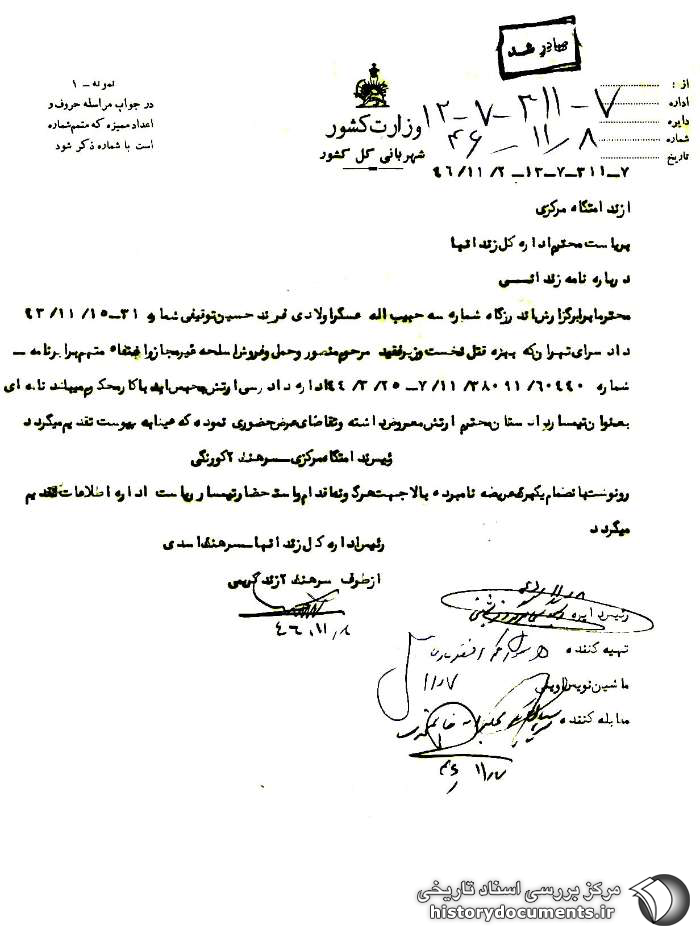 صادر شد
از :
اداره
دایره
شماره
تاریخ
۱۲-۷-۳۱۱-۷
۴۶/۱۱/۸
وزارت کشور
شهربانی کل کشور
نمونه - ۱
در جواب مراسله حروف و
اعداد ممیزه که متمم شماره
است با شماره ذکر شود
۴۶/۱۱/۲ -۱۲-۷-۳۱۱-۷
از ندامتگاه مرکزی
بریاست محترم اداره کل زندانها
درباره نامه زندانی
محترما برابر گزارش اندرزگاه شماره سه حبیب اله عسگراولادی فرزند حسین توقیفی شماره ۳۱-۴۳/۱۱/۱۵
دادسرای تهران که ببزه قتل نخست وزیر فقید مرحوم منصور و حمل و فروش اسلحه غیرمجاز و استفاده متهم برابر نامه -
شماره ۷/۱۱/۳۸۰۹۱/۶۰۴۴۰-۴۴/۳/۲۵ اداره دادرسی ارتش بحبس ابد با کار محکوم میباشد نامه ای
بعنوان تیمسار دادستان محترم ارتش معروض داشته و تقاضای عرض حضوری نموده که عینا به پیوست تقدیم میگردد
رئیس ندامتگاه مرکزی - سرهنگ ۲ کورنگی
رونوشت با انضمام یکبرگ عریضه نامبرده بالا جهت هرگونه اقدام باستحضار تیمسار ریاست اداره اطلاعات تقدیم
میگردد
رئیس اداره کل زندانها - سرهنگ اسدی
از طرف سرهنگ ۲ زندکریمی
۴۶/۱۱/۸
رئیس دایره
تهیه کننده
ماشین نویس اویسی
۱۱/۷
مقابله کننده
۴۶/۱۱/۷
مرکز بررسی اسناد تاریخی
historydocuments.ir